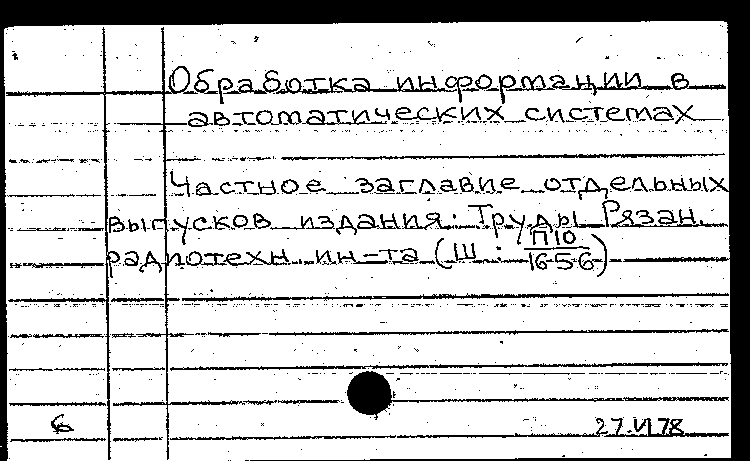 Обработка информации в
автоматических системах
Частное заглавие отдельных
выпусков издания: Труды Рязан.
радиотехн. ин-та (Ш : П10/16-56)
6 27.VI78